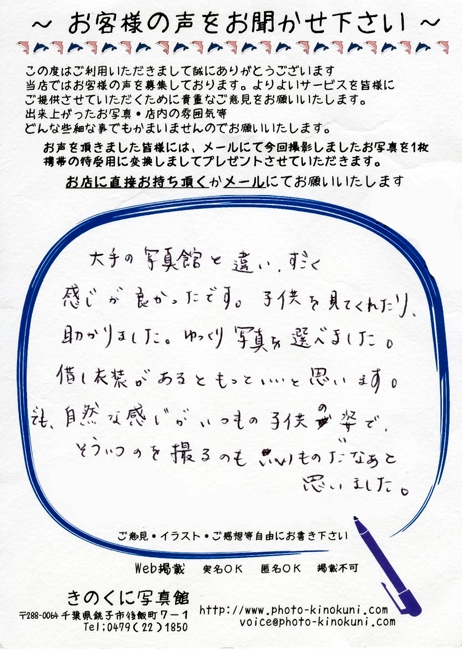 ～ お客様の声をお聞かせ下さい ～
この度はご利用いただきまして誠にありがとうございます
当店ではお客様の声を募集しております。よりよいサービスを皆様に
ご提供させていただくために貴重なご意見をお願いいたします。
出来上がったお写真・店内の雰囲気等
どんな些細な事でもかまいませんのでお願いいたします。
お声を頂きました皆様には、メールにて今回撮影しましたお写真を1枚
携帯の待受用に変換しましてプレゼントさせていただきます。
お店に直接お持ち頂くかメールにてお願いいたします
大手の写真館と違い、すごく
感じが良かったです。子供を見てくれたり、
助かりました。ゆっくり写真を選べました。
借し衣装があるともっといいと思います。
でも、自然な感じがいつもの子供の姿で、
そういうのを撮るのも良いものだなあと
思いました。
ご意見・イラスト・ご感想等自由にお書き下さい
Web掲載 実名OK 匿名OK 掲載不可
きのくに写真館
〒288-0064 千葉県銚子市後飯町7－1
Tel:0479(22)1850
http://www.photo-kinokuni.com/
voice@photo-kinokuni.com